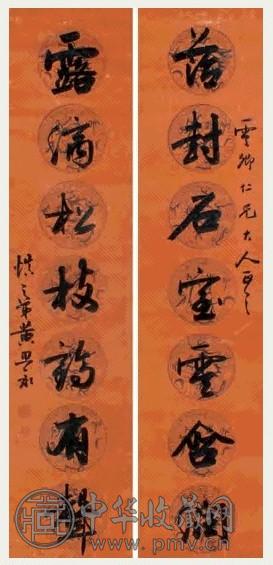 雲卿仁兄大人正之
苔封石室雲含潤
露滴松枝鶴有聲
慎之弟黃思永
中华收藏网
www.pmv.cn